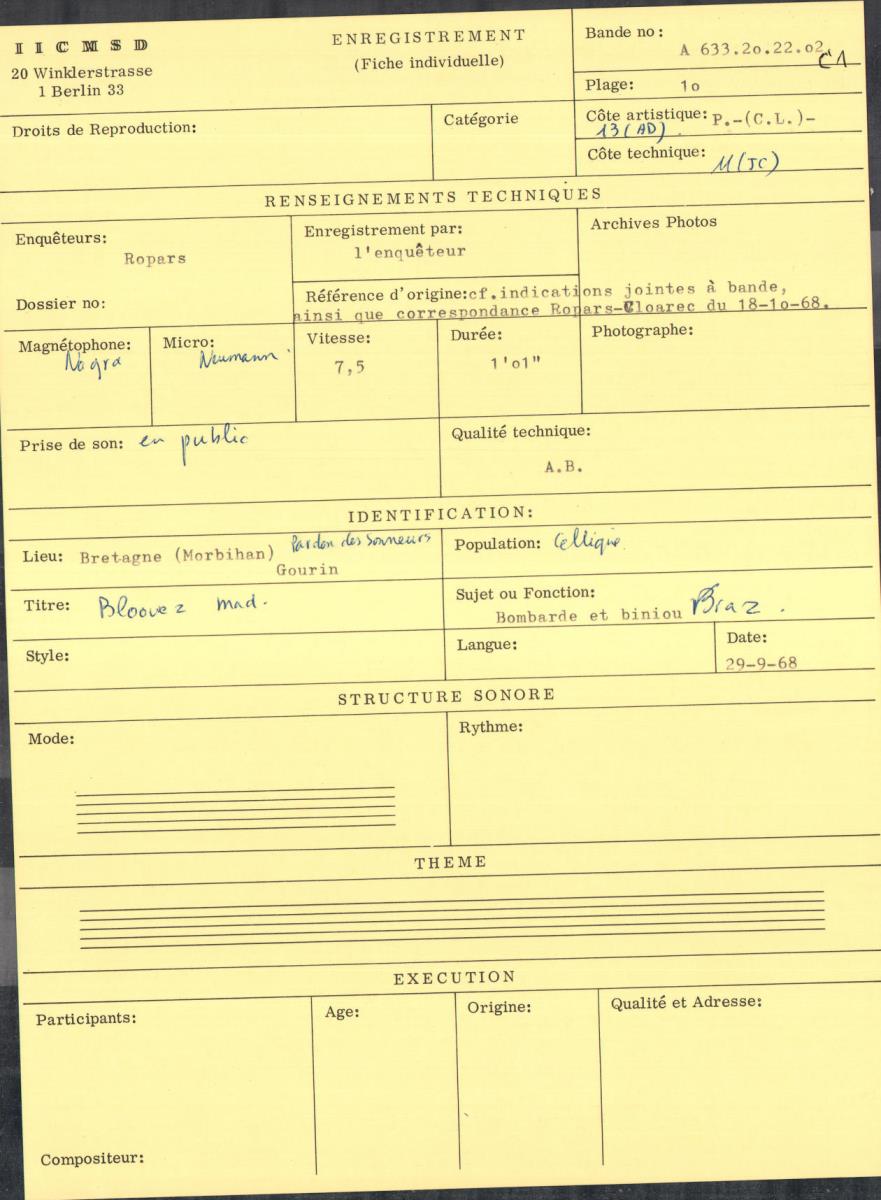 IICMSD
20 Winklerstrasse
1 Berlin 33
ENREGISTREMENT
(Fiche individuelle)
Bande no:
A 633.2o.22.o2
C1
Plage: 1o
Droits de Reproduction:
Catégorie
Côte artistique: P.-(C.L.)-
13(AD).
Côte technique:
11(JC)
RENSEIGNEMENTS TECHNIQUES
Enquêteurs:
Ropars
Dossier no:
Enregistrement par:
l'enquêteur
Archives Photos
Référence d'origine:cf.indications jointes à bande,
ainsi que correspondance Ropars-Cloarec du 18-1o-68.
Magnétophone:
Nagra
Micro:
Neumann.
Vitesse:
7,5
Durée:
1'o1"
Photographe:
Prise de son: en public
Qualité technique:
A.B.
IDENTIFICATION:
Lieu: Bretagne (Morbihan) Pardon des Sonneurs
Gourin
Population: Celtique.
Titre: Bloavez mad.
Sujet ou Fonction:
Bombarde et biniou Braz.
Style:
Langue:
Date:
29-9-68
STRUCTURE SONORE
Mode:
Rythme:
THEME
EXECUTION
Participants:
Age:
Origine:
Qualité et Adresse:
Compositeur: